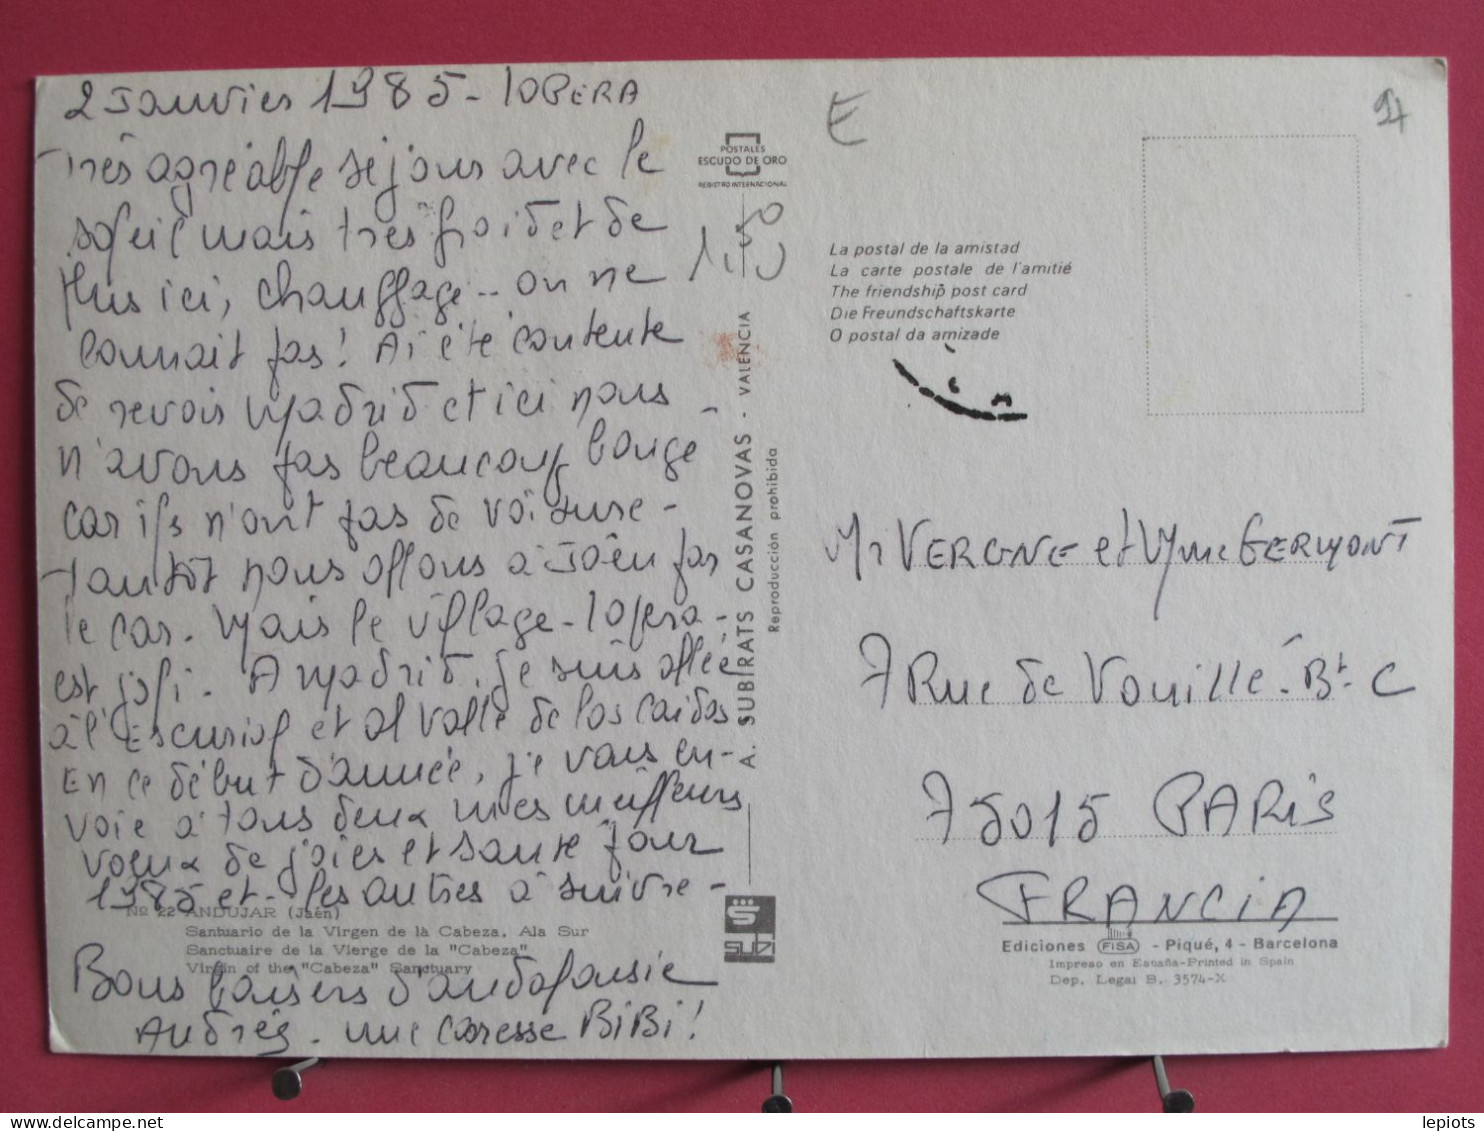 2 Janvier 1985 - lOPERA
Très agréable séjour avec le
soleil mais très froid et de
plus ici, chauffage -- on ne
connait pas! Ai été contente
de revoir Madrid et ici nous
n'avons pas beaucoup bougé
car ils n'ont pas de voiture -
Tantôt nous allons à Jaén par
le car. Mais le village - lopera -
est joli. A Madrid, je suis allée
à l'Escurial et al valle de los Caidos
En ce début d'année, je vous en-
voie à tous deux mes meilleurs
voeux de joies et santé pour
1985 et - les autres à suivre -
Nº 22 ANDUJAR (Jaén)
Santuario de la Virgen de la Cabeza. Ala Sur
Sanctuaire de la Vierge de la "Cabeza"
Virgin of the "Cabeza" Sanctuary
Bons baisers d'andalousie
Andrée. une caresse BiBi!
POSTALES
ESCUDO DE ORO
REGISTRO INTERNACIONAL
A. SUBIRATS CASANOVAS - VALENCIA
Reproducción prohibida
SUBI
E
La postal de la amistad
La carte postale de l'amitié
The friendship post card
Die Freundschaftskarte
O postal da amizade
Mr VERGNE et Mme GERMONT
7 Rue de Vouillé - Bt - C
75015 PARiS
FRANCiA
Ediciones FISA - Piqué, 4 - Barcelona
Impreso en España-Printed in Spain
Dep. Legal B. 3574-X
lepiots